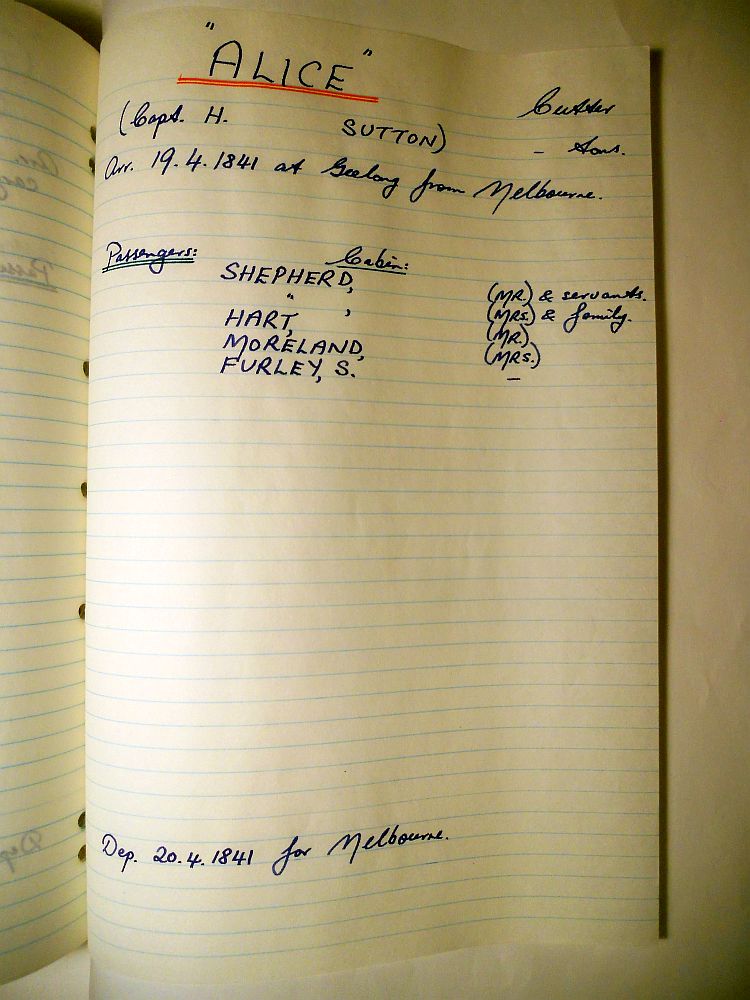 "ALICE"
Cutter
(Capt. H. SUTTON) - tons.
Arr. 19.4.1841 at Geelong from Melbourne.
Passengers: Cabin:
SHEPHERD, (MR.) & servants.
" , (MRS.) & family.
HART, (MR.)
MORELAND, (MRS.)
FURLEY, S. —
Dep. 20.4.1841 for Melbourne.